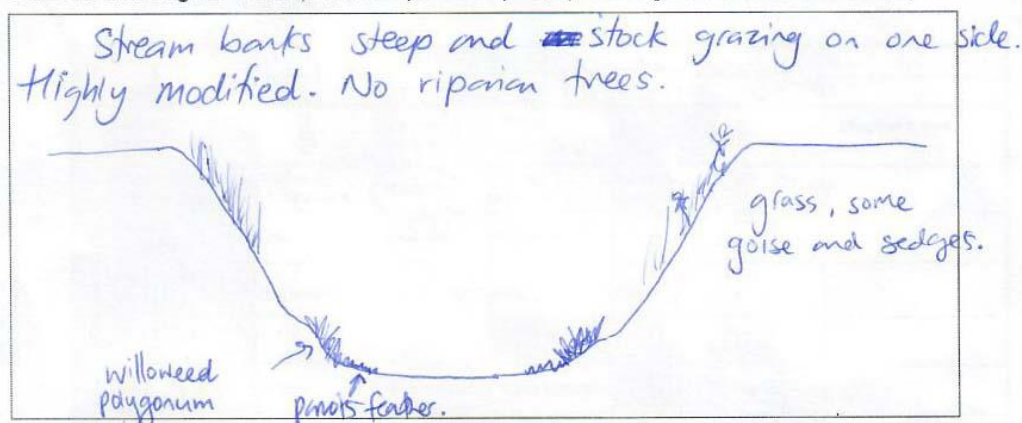 Stream banks steep and stock grazing on one side.
Highly modified. No riparian trees.
grass, some
goise and sedges.
willoweed
polygonum
parrots feather.